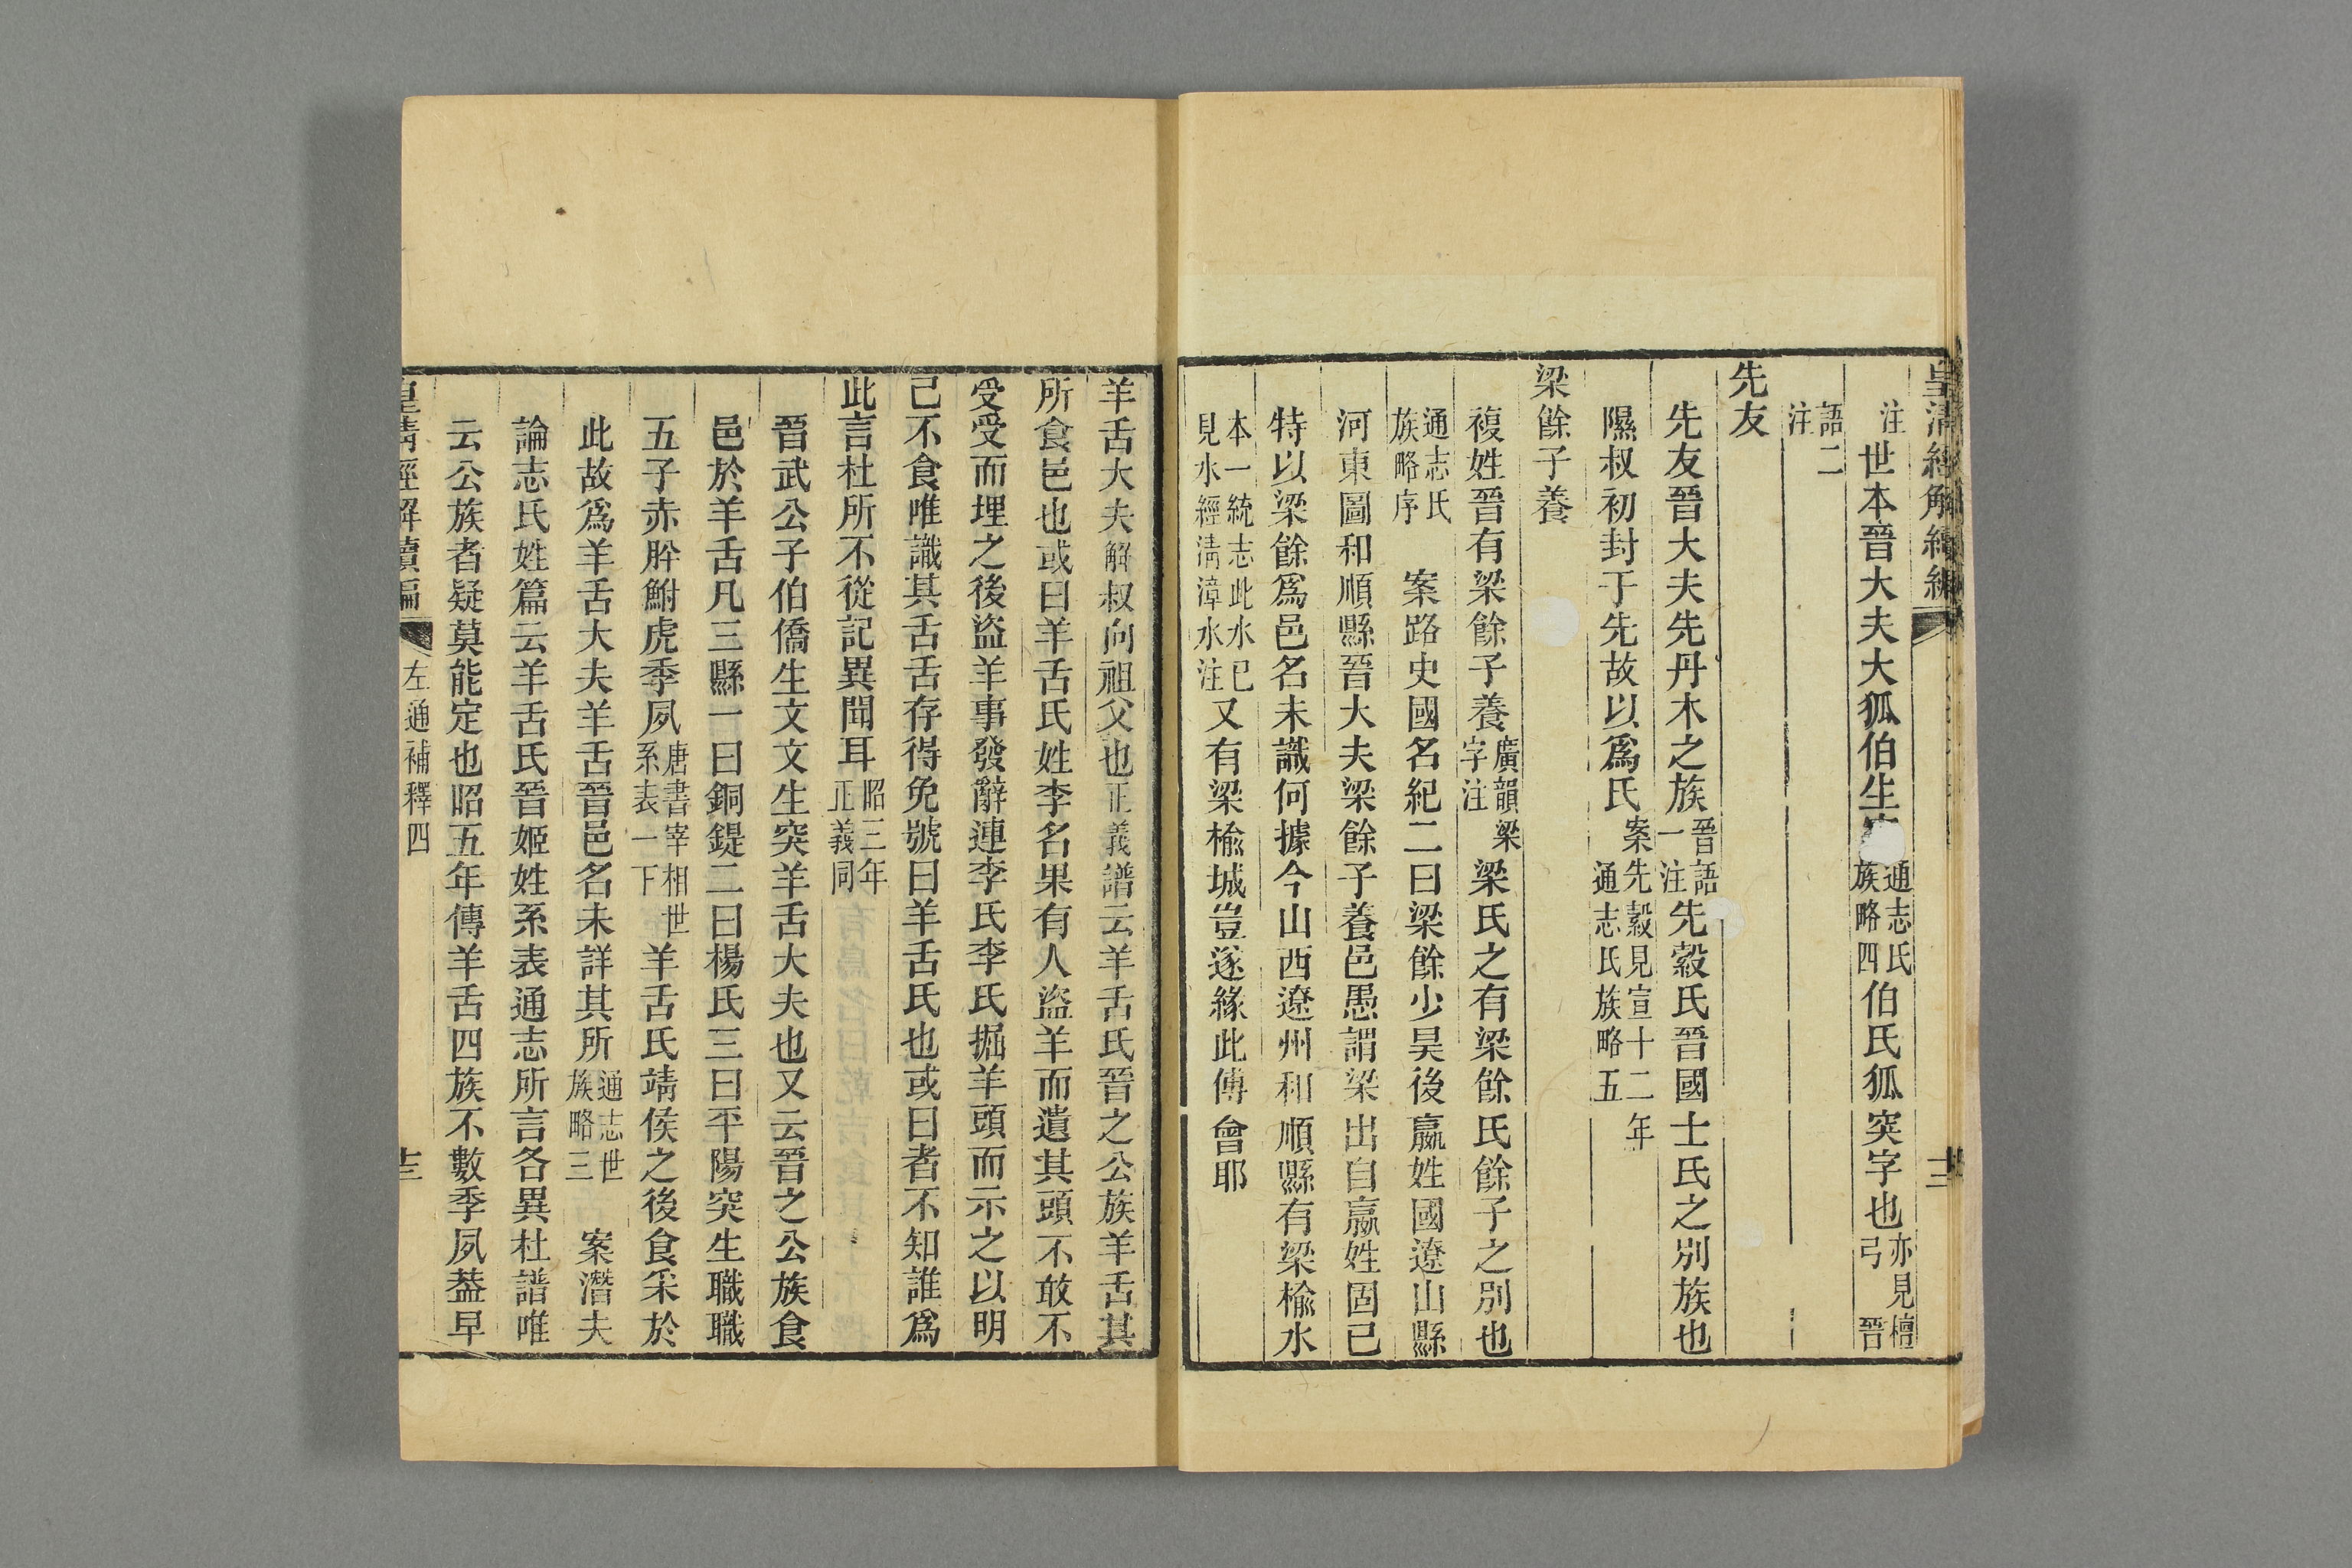 皇清經解續編
十三
注世本晉大夫大狐伯生突通志氏族略四伯氏狐突字也亦見檀弓晉
語二注
先友
先友晉大夫先丹木之族晉語一注先縠氏晉國士氏之別族也
隰叔初封于先故以爲氏案先縠見宣十二年通志氏族略五
梁餘子養
複姓晉有梁餘子養廣韻梁字注梁氏之有梁餘氏餘子之別也
通志氏族略序案路史國名紀二曰梁餘少昊後嬴姓國遼山縣
河東圖和順縣晉大夫梁餘子養邑愚謂梁出自嬴姓固已
特以梁餘爲邑名未識何據今山西遼州和順縣有梁榆水
本一統志此水已見水經淸漳水注又有梁榆城豈遂緣此傅會耶
羊舌大夫解叔向祖父也正義譜云羊舌氏晉之公族羊舌其
所食邑也或曰羊舌氏姓李名果有人盜羊而遺其頭不敢不
受受而埋之後盜羊事發辭連李氏李氏掘羊頭而示之以明
己不食唯識其舌舌存得免號曰羊舌氏也或曰者不知誰爲
此言杜所不從記異聞耳昭三年正義同
晉武公子伯僑生文文生突羊舌大夫也又云晉之公族食
邑於羊舌凡三縣一曰銅鍉二曰楊氏三曰平陽突生職職
五子赤肸鮒虎季夙唐書宰相世系表一下羊舌氏靖侯之後食采於
此故爲羊舌大夫羊舌晉邑名未詳其所通志世族略三案潛夫
論志氏姓篇云羊舌氏晉姬姓系表通志所言各異杜譜唯
云公族者疑莫能定也昭五年傳羊舌四族不數季夙葢早
皇清經解續編
左通補釋四
十三